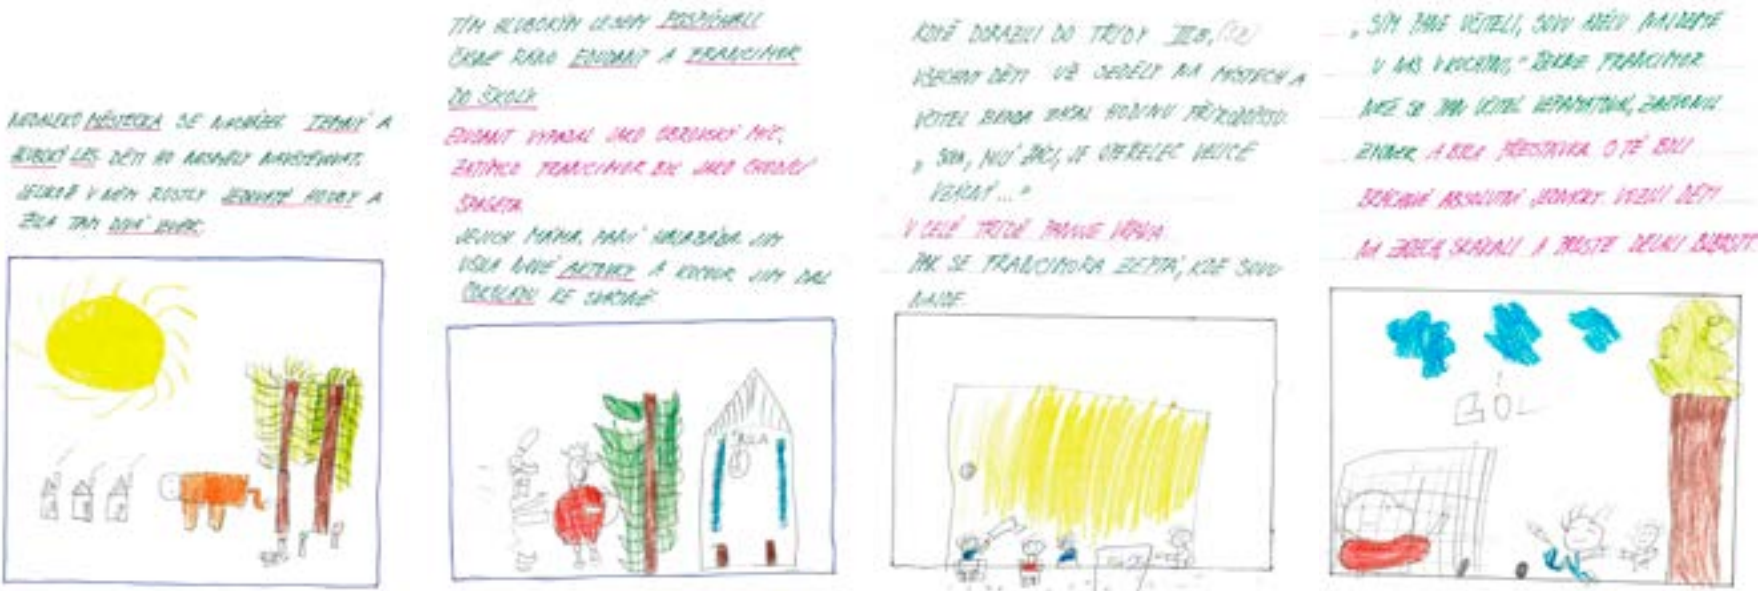 NEDALEKO MĚSTEČKA SE NACHÁZEL TEMNÝ A
HLUBOKÝ LES. DĚTI HO NESMĚLY NAVŠTĚVOVAT,
JELIKOŽ V NĚM ROSTLY JEDOVATÉ HOUBY A
ŽILA TAM DIVÁ ZVĚŘ.
TÍM HLUBOKÝM LESEM POSPÍCHALI
RÁNO EDUDANT A FRANCIMOR
DO ŠKOLY.
EDUDANT VYPADAL JAKO OBROVSKÝ MÍČ,
ZATÍMCO FRANCIMOR BYL JAKO CHODÍCÍ
ŠPAGETA.
JEJICH MÁMA, PANÍ HALABÁBA JIM
UŠILA NOVÉ AKTOVKY A KOCOUR JIM DAL
ČOKOLÁDU KE SVAČINĚ.
ŠKOLA
KDYŽ DORAZILI DO TŘÍDY III.B,
VŠECHNY DĚTI UŽ SEDĚLY NA MÍSTECH A
UČITEL ZAČAL HODINU PŘÍRODOPISU.
„SOVA, MILÍ ŽÁCI, JE OPEŘENEC VELICE
VZÁCNÝ..."
V CELÉ TŘÍDĚ PANUJE VŘAVA.
PAK SE FRANCIMORA ZEPTÁ, KDE SOVU
NAJDE.
PANE UČITELI, SOVU NAJDETE
U NÁS V KUCHYNI," ŘEKNE FRANCIMOR.
NEŽ SE PAN UČITEL VZPAMATOVAL, ZAZVONIL
ZVONEK A BYLA PŘESTÁVKA. O TÉ BYLI
ABSOLUTNÍ JEDNIČKY. VOZILI DĚTI
NA ZÁDECH, SKÁKALI A PROSTĚ DĚLALI
GÓL